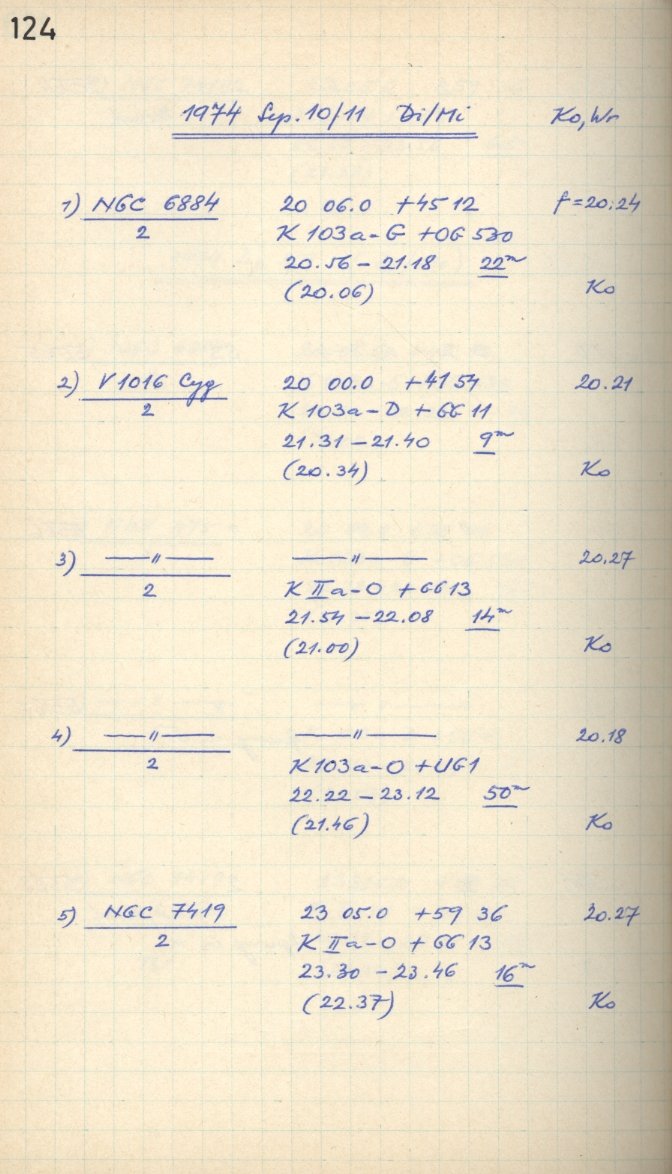 124
1974 Sep. 10/11 Di/Mi Ko, Wr
1) NGC 6884 20 06.0 +45 12 f = 20.24
2 K 103a-G + OG 530
20.56 – 21.18 22m
(20.06) Ko
2) V 1016 Cyg 20 00.0 +41 54 20.21
2 K 103a-D + GG 11
21.31 – 21.40 9m
(20.34) Ko
3) —〃— —〃— 20.27
2 K IIa-O + GG 13
21.54 – 22.08 14m
(21.00) Ko
4) —〃— —〃— 20.18
2 K 103a-O + UG1
22.22 – 23.12 50m
(21.46) Ko
5) NGC 7419 23 05.0 +59 36 20.27
2 K IIa-O + GG 13
23.30 – 23.46 16m
(22.37) Ko